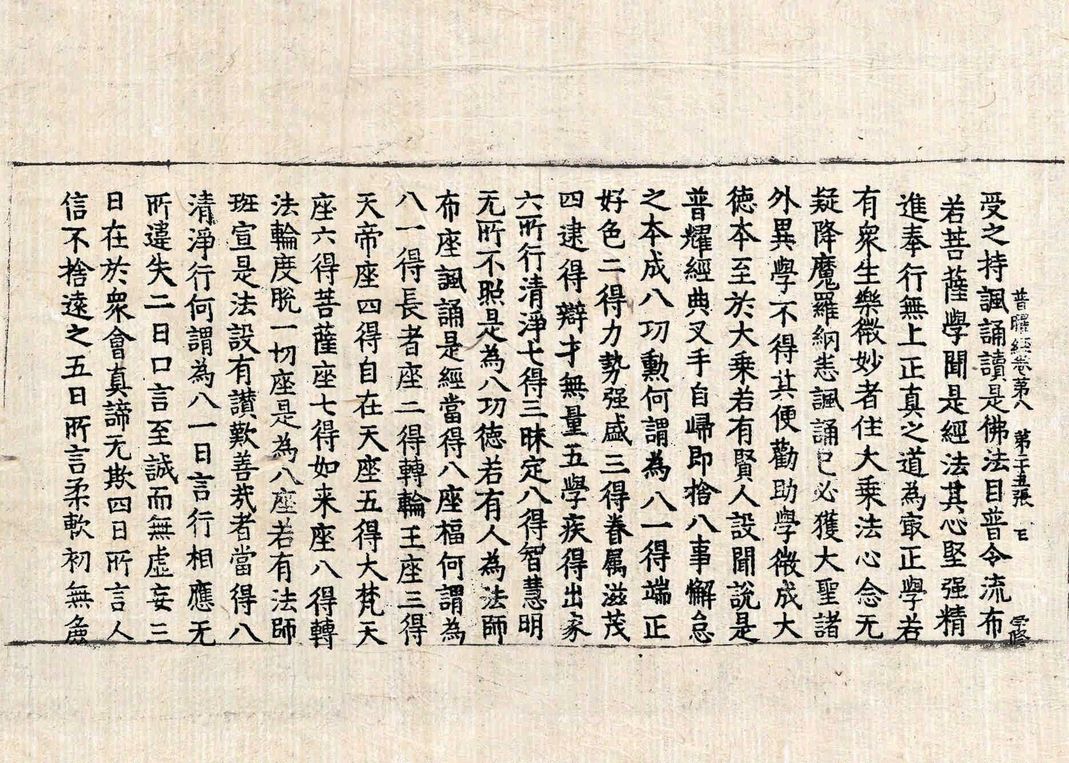 普曜經卷第八 第二十五張
受之持諷誦讀是佛法目普令流布
若菩薩學聞是經法其心堅强精
進奉行無上正真之道為㝡正學若
有衆生樂微妙者住大乘法心念无
疑降魔羅網悉諷誦已必獲大聖諸
外異學不得其便勸助學微成大
德本至於大乘若有賢人設聞說是
普耀經典叉手自歸即捨八事懈怠
之本成八功勳何謂為八一得端正
好色二得力勢强盛三得眷属滋茂
四逮得辯才無量五學疾得出家
六所行清淨七得三昧定八得智慧明
无所不照是為八功徳若有人為法師
布座諷誦是經當得八座福何謂為
八一得長者座二得轉輪王座三得
天帝座四得自在天座五得大梵天
座六得菩薩座七得如来座八得轉
法輪度脫一切座是為八座若有法師
班宣是法設有讃歎善哉者當得八
清淨行何謂為八一曰言行相應无
所違失二曰口言至誠而無虛妄三
曰在於衆會真諦无欺四曰所言人
信不捨遠之五曰所言柔軟初無麁